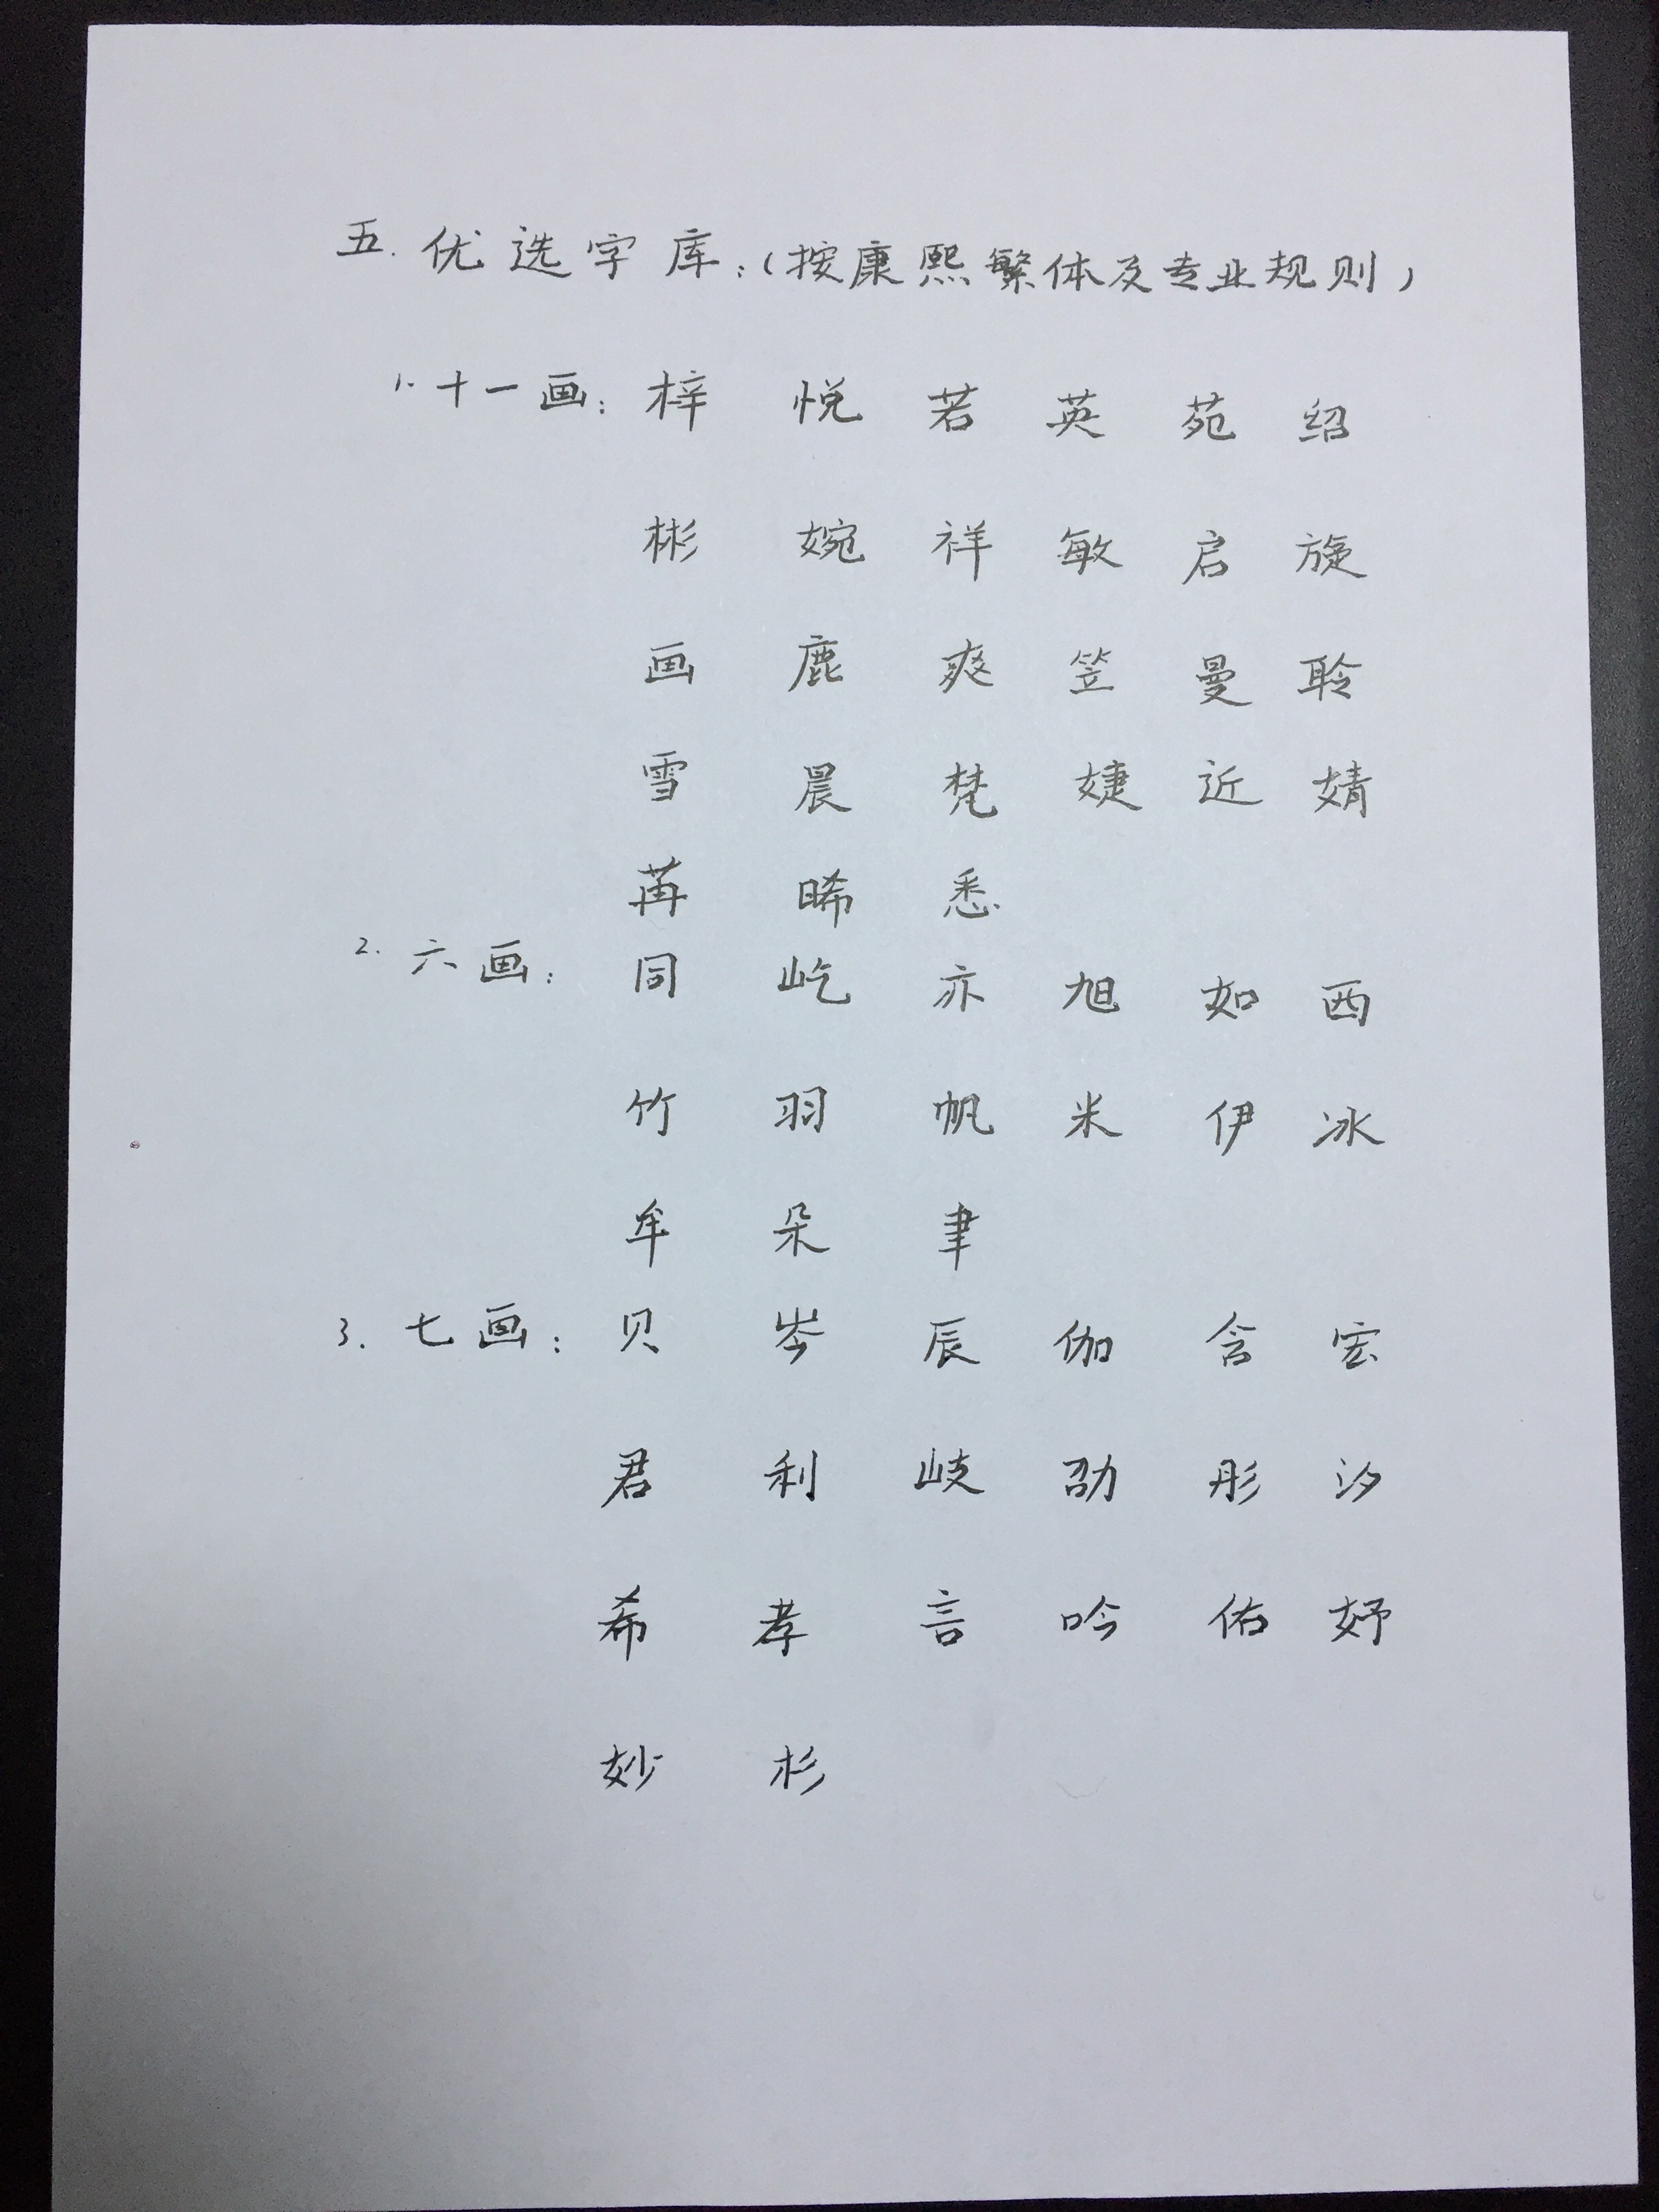 五.优选字库:(按康熙繁体及专业规则)
1.十一画:梓 悦 若 英 苑 绍
彬 婉 祥 敏 启 旋
画 鹿 爽 笠 曼 聆
雪 晨 梵 婕 近 婧
苒 晞 悉
2.六画:同 屹 亦 旭 如 西
竹 羽 帆 米 伊 冰
牟 朵 聿
3.七画:贝 岑 辰 伽 含 宏
君 利 岐 劭 彤 汐
希 孝 言 吟 佑 妤
妙 杉